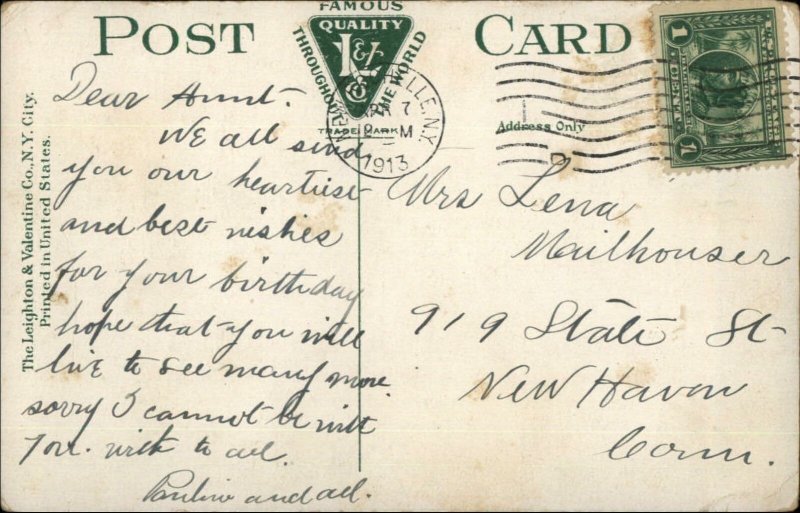 POST CARD
FAMOUS
QUALITY
L&V
Co
THROUGHOUT THE WORLD
TRADE MARK
APR 7
M
1913
N.Y.
Address Only
1
1
The Leighton & Valentine Co., N.Y. City.
Printed in United States.
Dear Aunt-
We all send
you our heartiest
and best wishes
for your birthday
hope that you will
live to see many more
sorry I cannot be with
you. with to all.
Pauline and all.
Mrs Lena
Mailhouser
919 State St
New Haven
Conn.